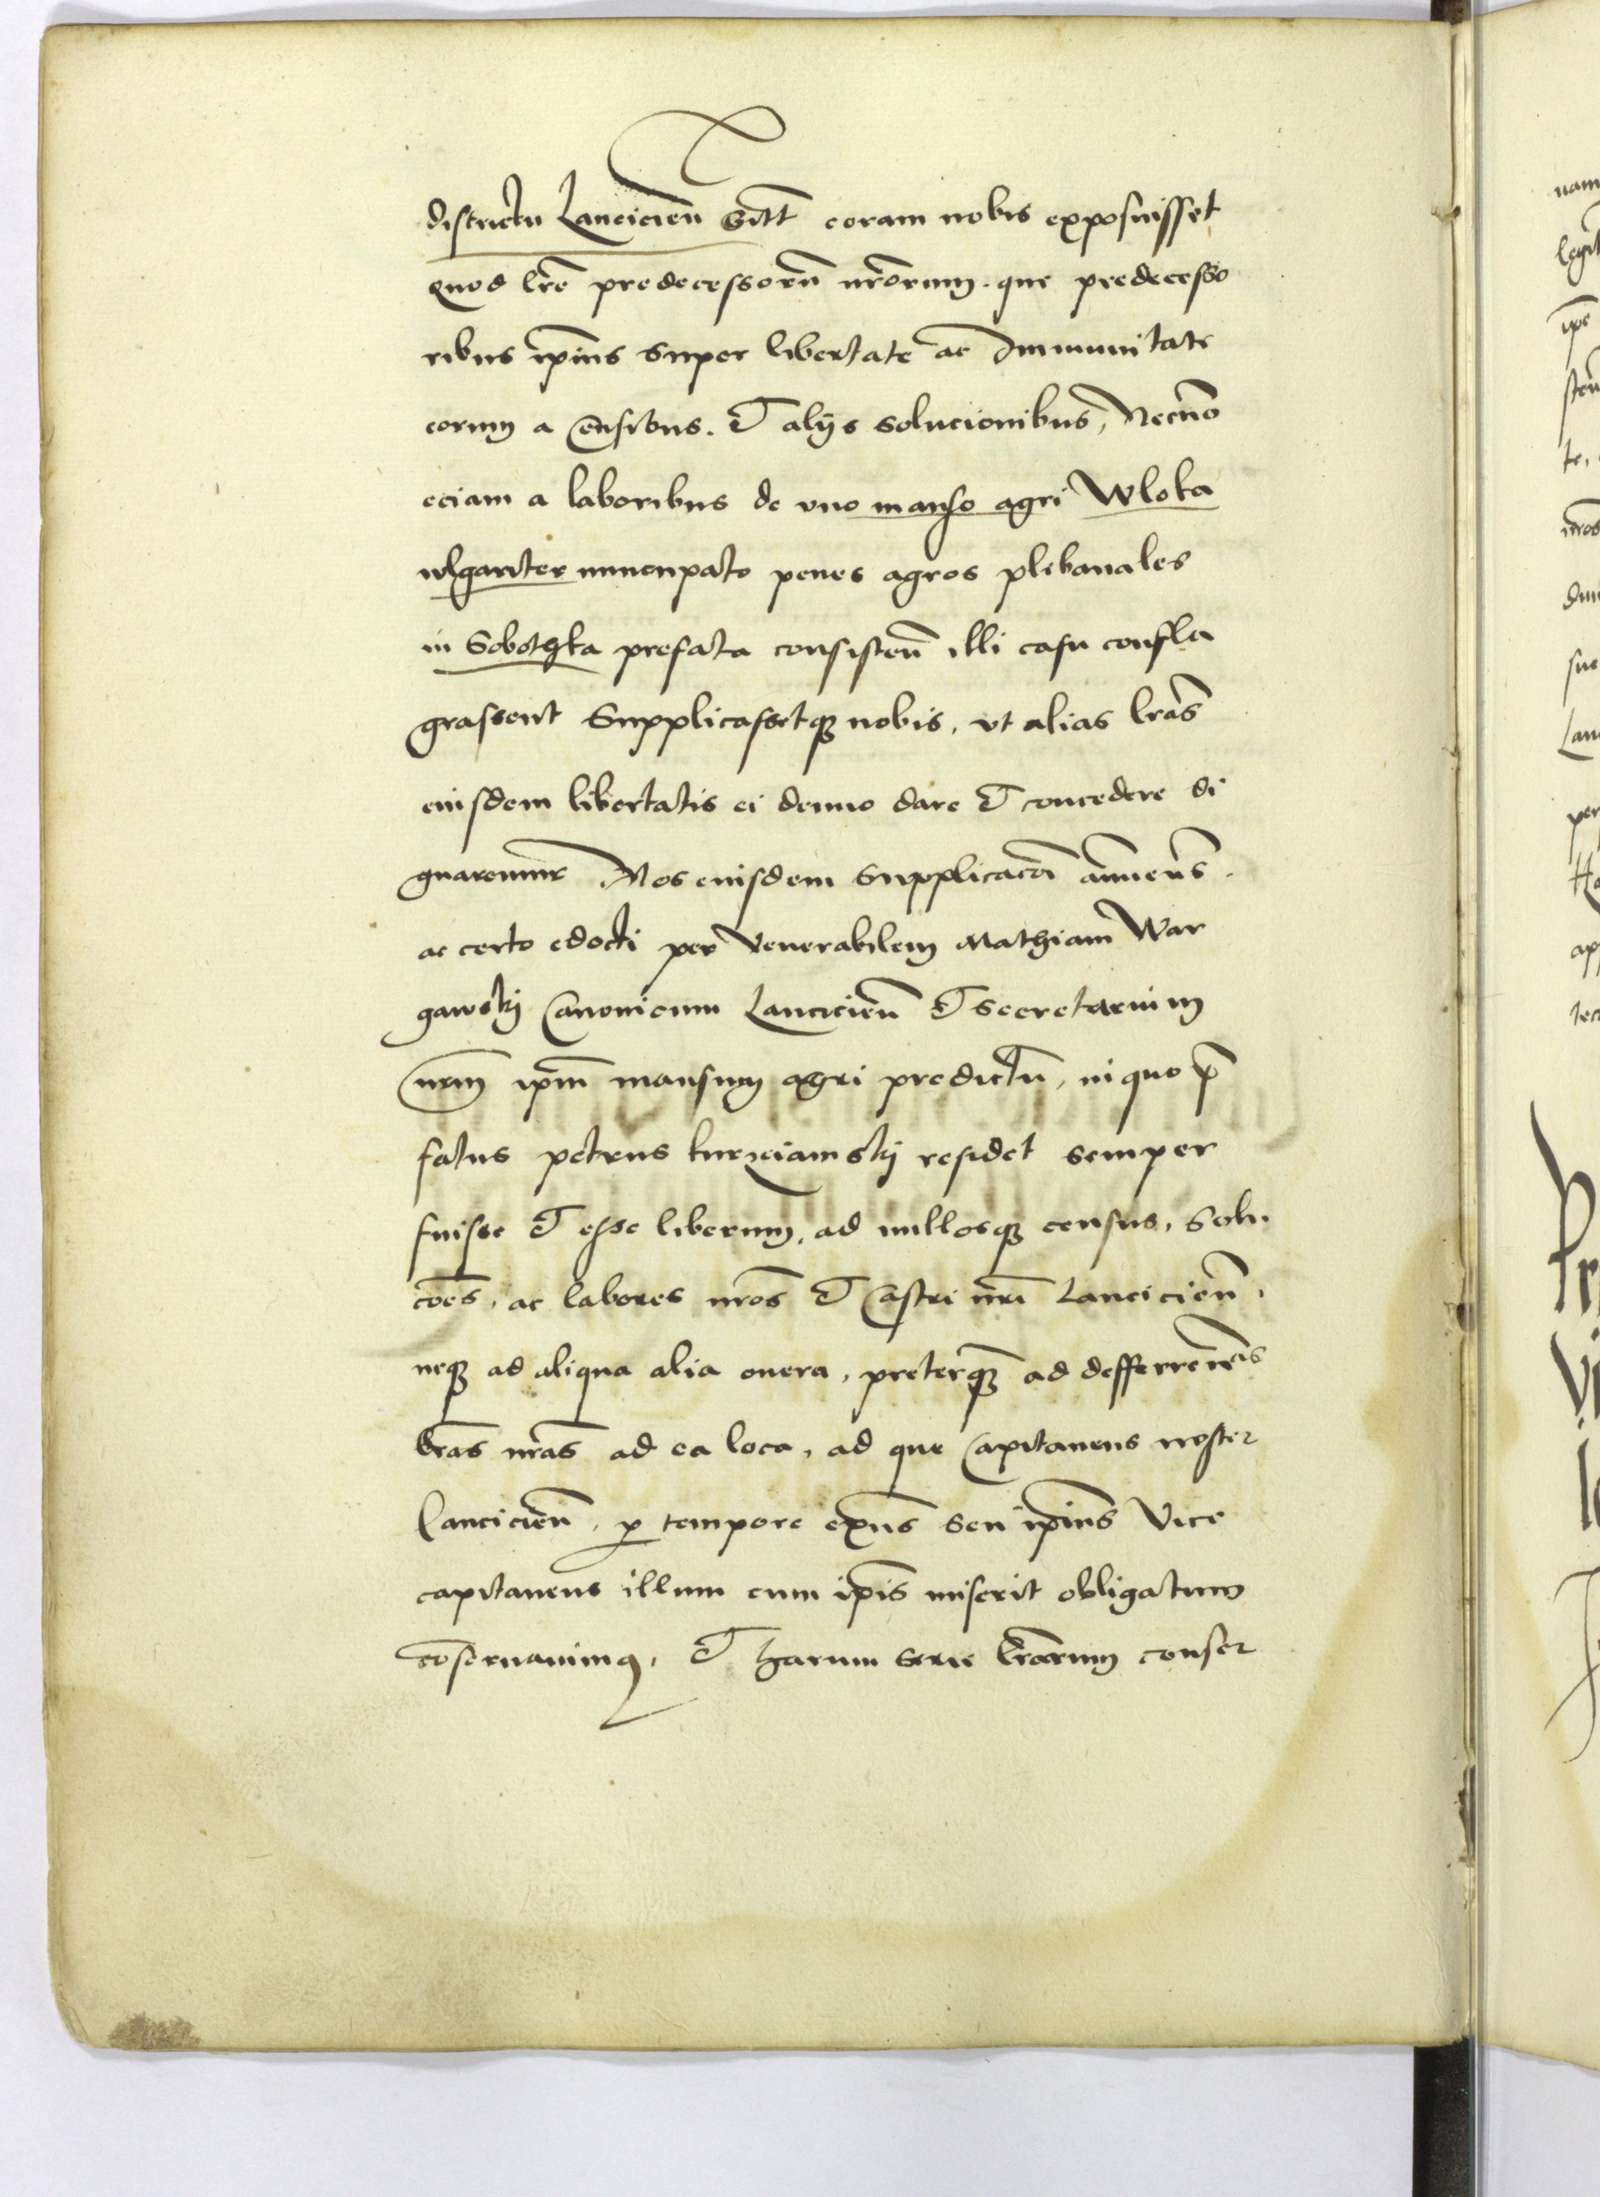 districtu Lancicieñ Sitt̃ coram nobis exposuisset
quod lr̃e predecessorũ nr̃orum. que predecesso
ribus ip̃ius super libertate ac Immunitate
eorum a Censibus. Et alijs solucionibus, Necño
eciam a laboribus de vno manso agri Wloka
wlgariter nuncupato penes agros plebanales
in Sobothka prefata consisteñ illi casu confla
grassent Supplicassetqȝ nobis, vt alias lr̃as
euisdem libertatis ei denuo dare Et concedere di
gnaremur Nos euisdem supplicac̃oi annueñs.
ac certo edocti per Venerabilem Mathiam War
gawskj Canonicum Lancicieñ Et Secretarium
nr̃m ip̃m mansum agri predictũ, in quo p̃
fatus petrus kurziamskj residet semper
fuisse Et esse liberum, ad nullosqȝ census, Solu
c̃oes, ac labores nr̃os Et Castri nr̃i Lancicieñ,
neqȝ ad aliqua alia onera, preterqȝ̃ ad defferreñ
lr̃as nr̃as ad ea loca, ad que Capitaneus noster
Lancicieñ, p tempore exñs seu ip̃ius Vice
capitaneus illum cum ip̃is miserit obligatum
c̃oseruauimꝯ, Et harum serie lr̃arum conser